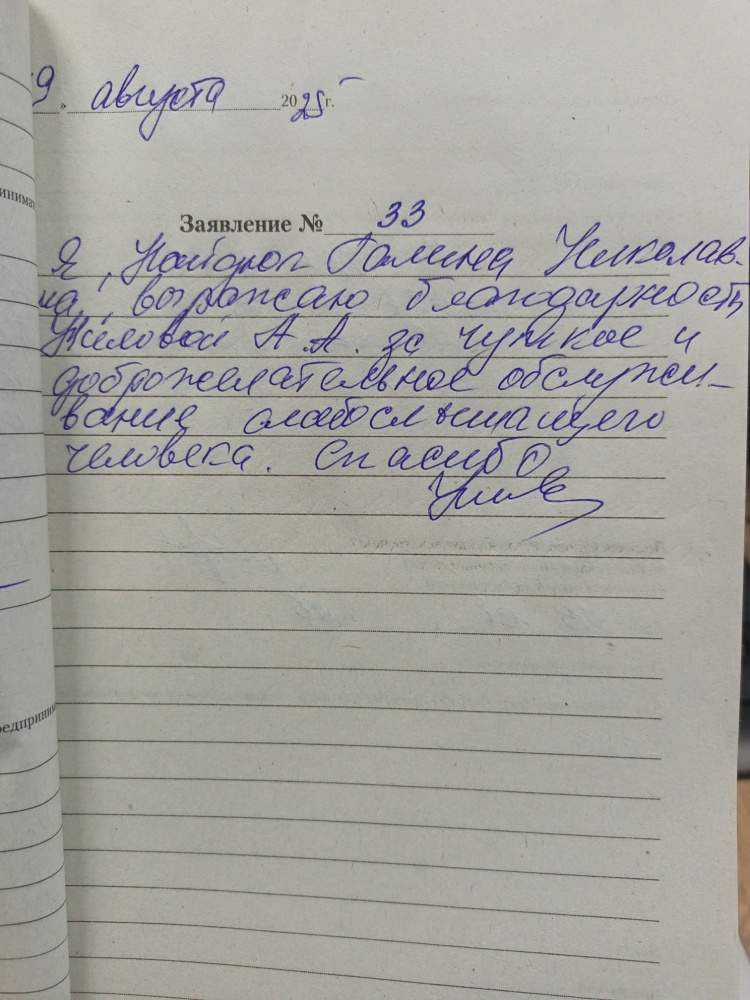 9. августа 2025 г.
инимат
Заявление № 33
Я, Галина Николав-
на, выражаю благодарность
Жиловой А.А. за чуткое и
доброжелательное обслужи-
вание слабослышащего
человека. Спасибо
редприним